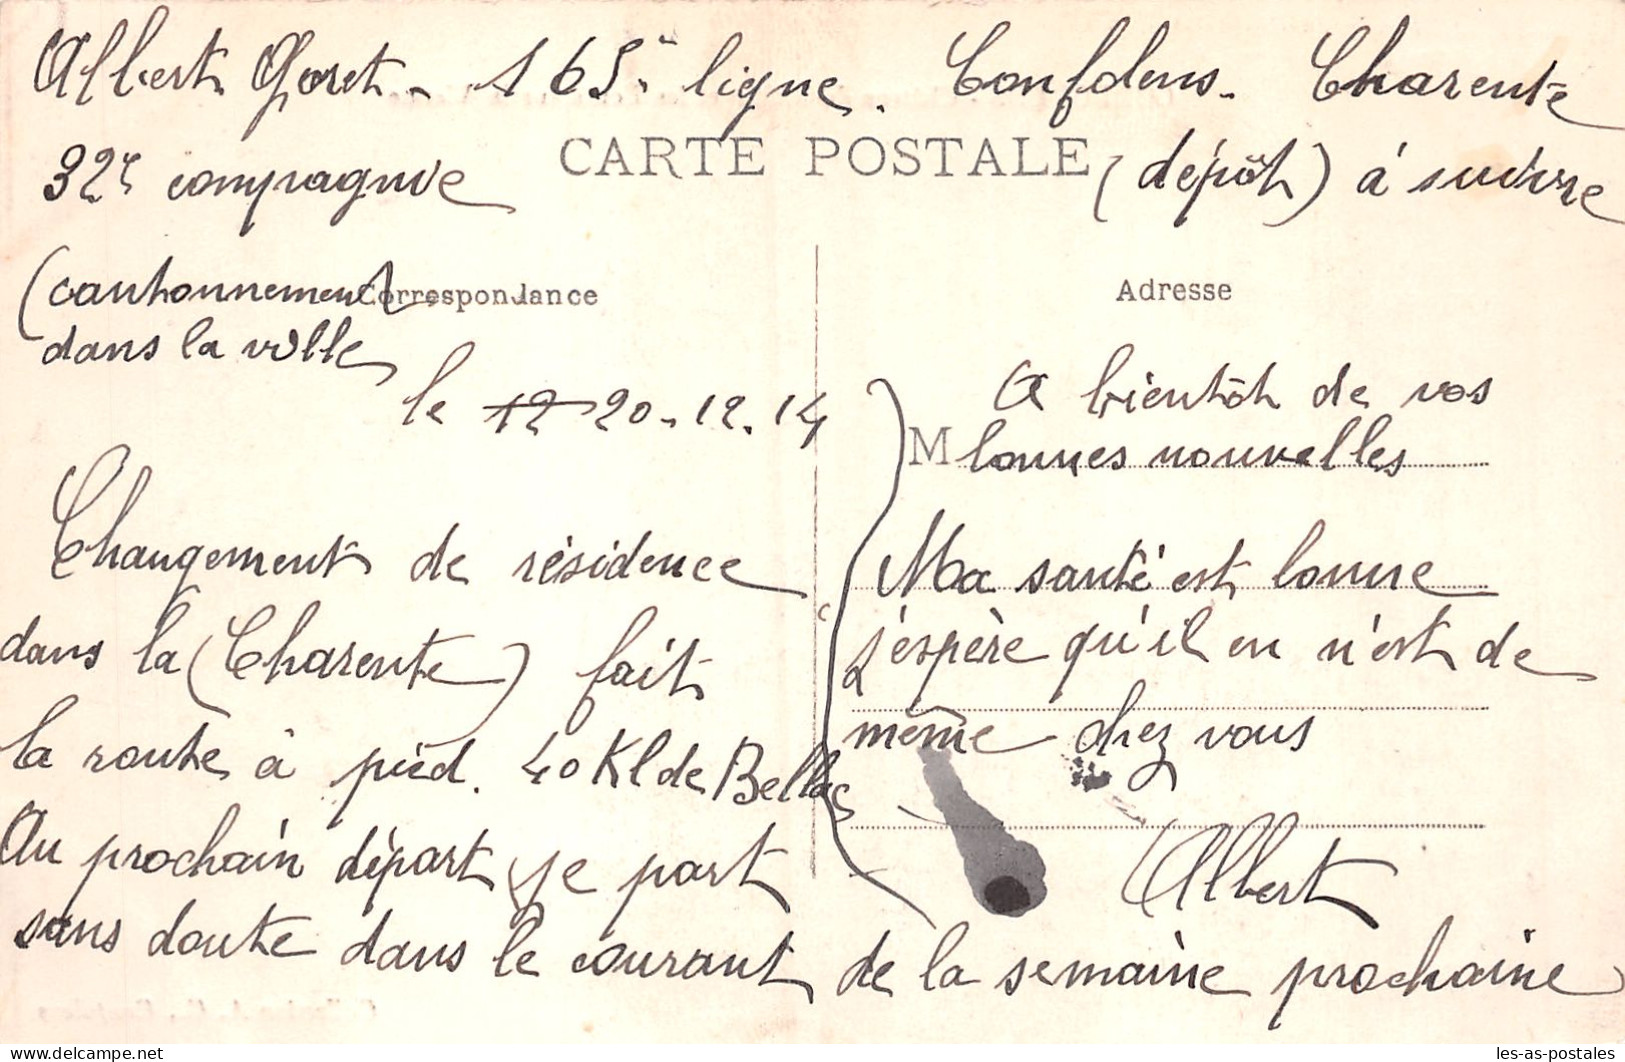 Albert Goret - 165e ligne. Confolens. Charente
32e compagnie
CARTE POSTALE
(dépôt) à suivre
(cantonnement
dans la ville
Correspondance
le 12 20-12.14
Changement de résidence
dans la (Charente) fait
la route à pied. 40 Kl de Bellac
Au prochain départ je part
sans doute dans le courant de la semaine prochaine
Adresse
A bientôt de vos
M bonnes nouvelles
Ma santé est bonne
j'espère qu'il en n'est de
même chez vous
Albert
les-as-postales